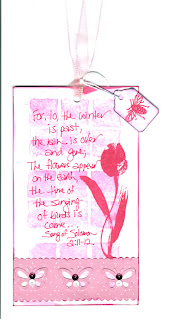 For, lo, the winter
is past,
the rain is over
and gone;
The flowers appear
on the earth;
the time of
the singing
of birds is
come.
Song of Solomon
2:11-12